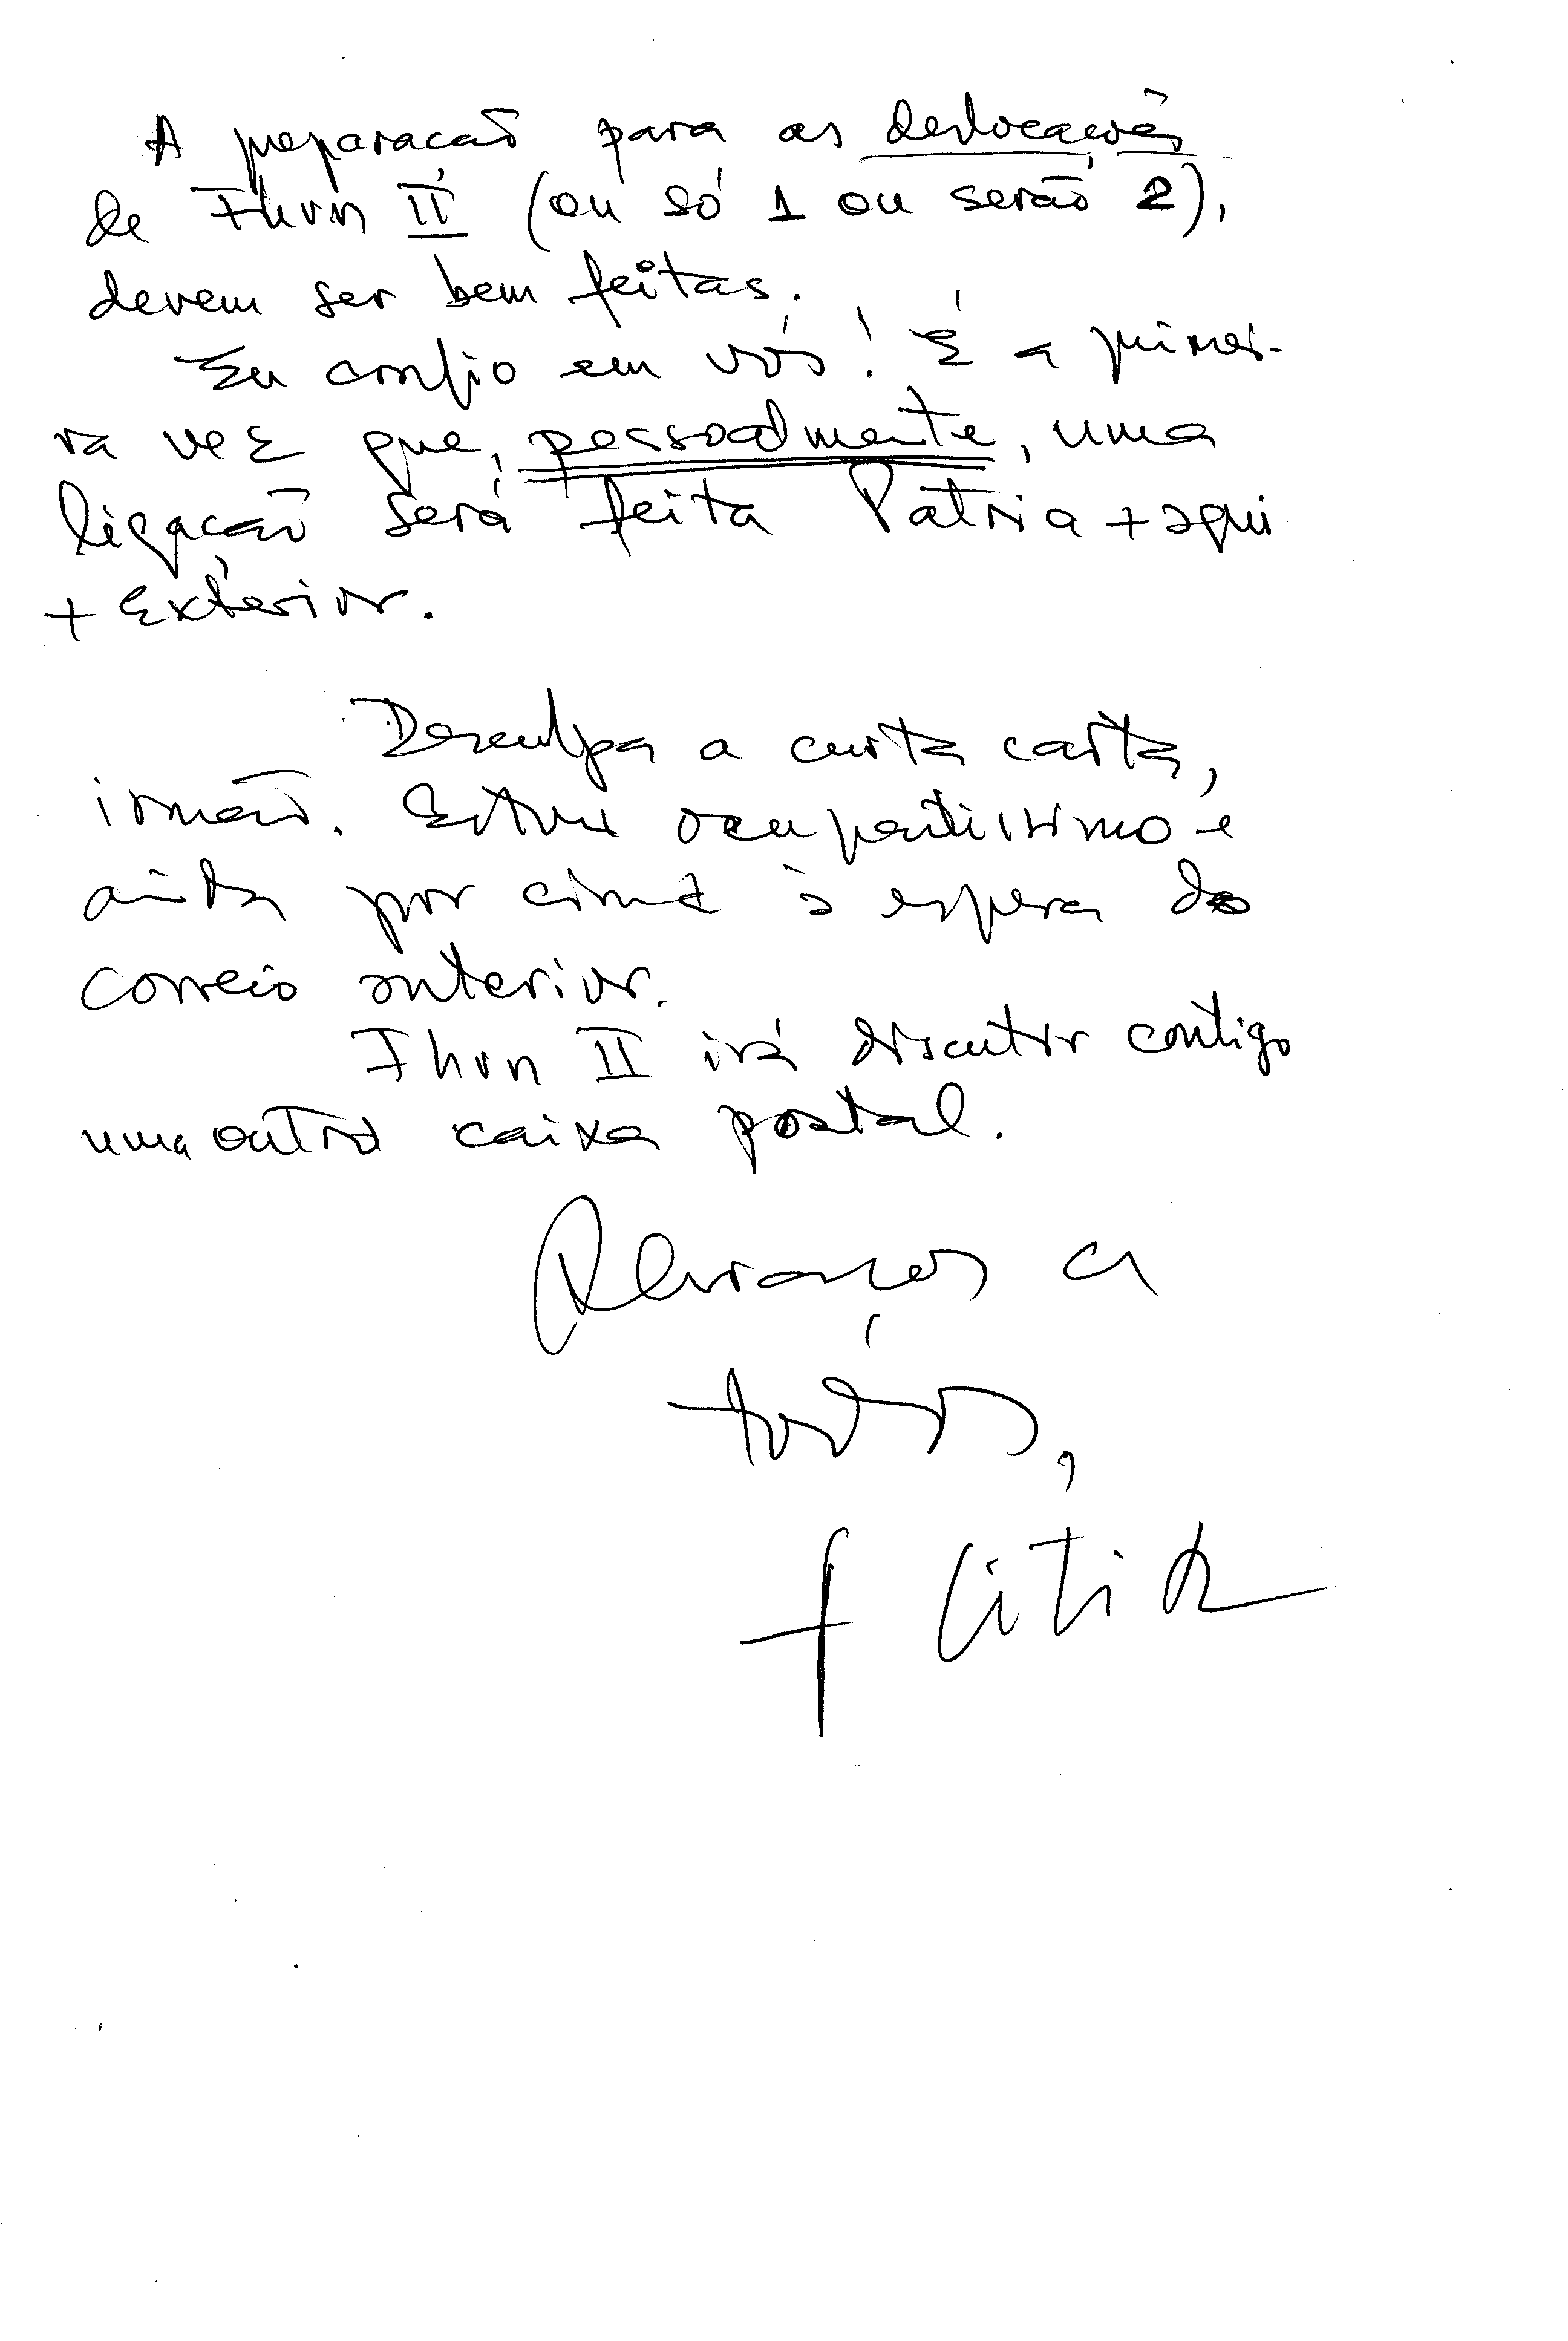 A preparação para as deslocações
de Fhun II (ou só 1 ou serão 2),
devem ser bem feitas.
Eu confio em vós! É a primei-
ra vez que, pessoalmente, uma
ligação será feita Patria + aqui
+ Exterior.
Desculpa a curta carta,
irmão. Estive ocupadissimo e
ainda por cima à espera do
correio anterior.
Fhun II irá discutir contigo
uma outra caixa postal.
Abraços a
todos,